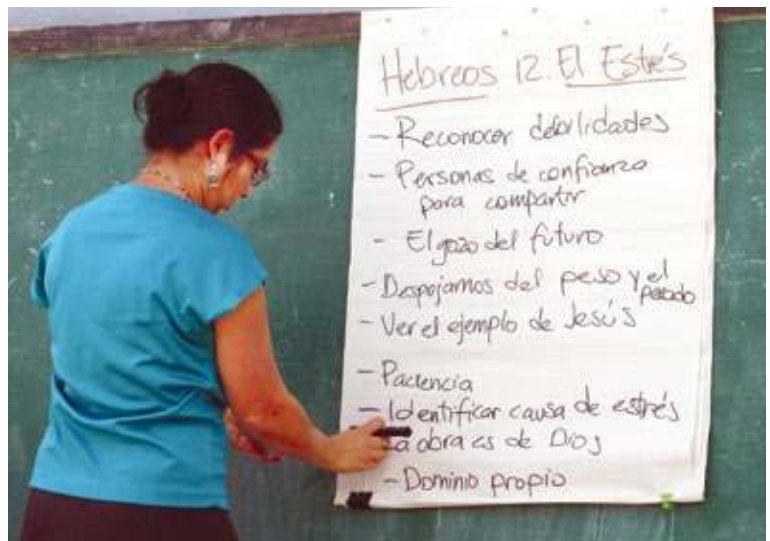 Hebreos 12. El Estrés
- Reconocer debilidades
- Personas de confianza
para compartir
- El gozo del futuro
- Despojarnos del peso y el
pecado
- Ver el ejemplo de Jesús
- Paciencia
- Identificar causa de estrés
- La obra es de Dios
- Dominio propio